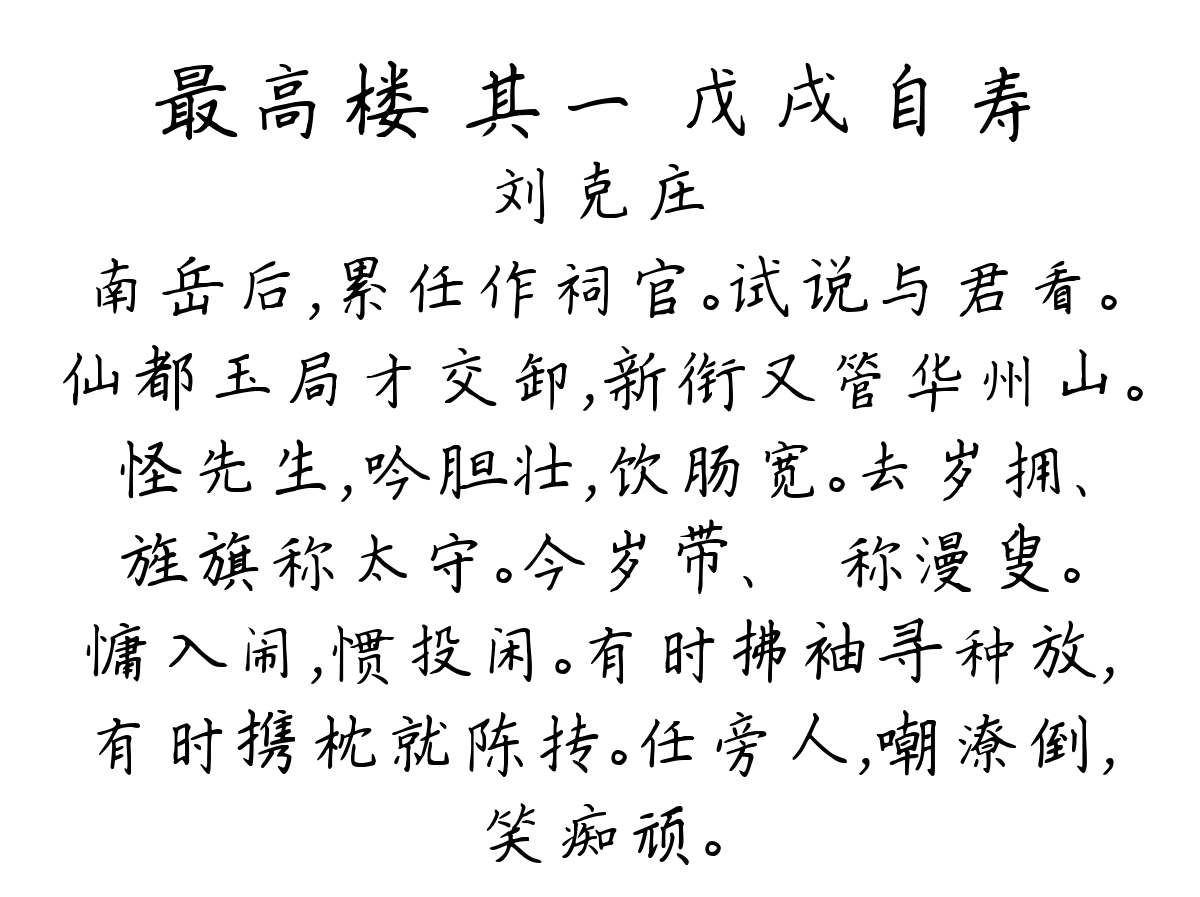 最高楼 其一 戊戌自寿
刘克庄
南岳后,累任作祠官。试说与君看。
仙都玉局才交卸,新衔又管华州山。
怪先生,吟胆壮,饮肠宽。去岁拥、
旌旗称太守。今岁带、 称漫叟。
慵入闹,惯投闲。有时拂袖寻种放,
有时携枕就陈抟。任旁人,嘲潦倒,
笑痴顽。